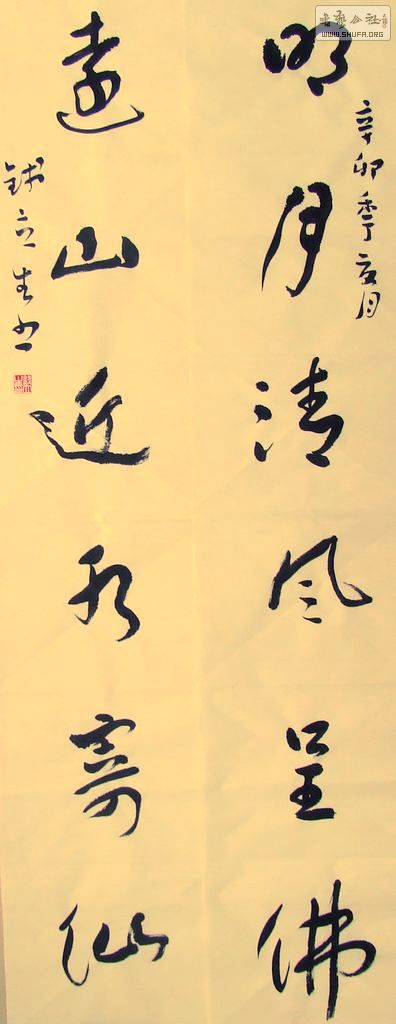 明月清风呈佛
辛卯季夏月
遠山近水寄仙
立生书
书艺公社
WWW.SHUFA.ORG